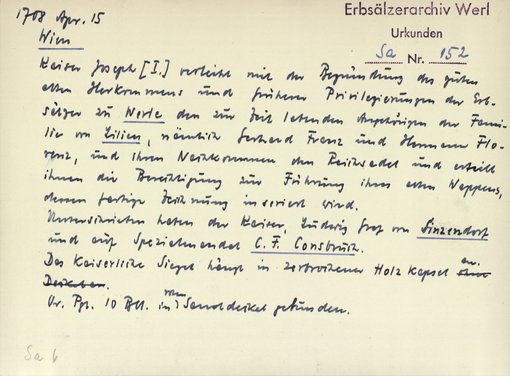 1708 Apr. 15
Erbsälzerarchiv Werl
Urkunden
Wien
Sa Nr. 152
Kaiser Joseph [I.] verleiht mit der Begründung des guten
alten Herkommens und früherer Privilegierungen der Erb-
sälzer zu Werle den zur Zeit lebenden Angehörigen der Fami-
lie von Lilien, nämlich Gerhard Franz und Hermann Flo-
renz, und ihren Nachkommen den Reichsadel und erteilt
ihnen die Berechtigung zur Führung ihres alten Wappens,
dessen farbige Zeichnung inseriert wird.
Unterschrieben haben der Kaiser, Ludwig Graf von Sinzendorf
und auf Spezialmandat C. F. Consbruch.
Das Kaiserliche Siegel hängt in zerbrochener Holzkapsel an.
Or. Pgt. 10 Bll. in roten Samtdeckel gebunden.
Sa 6